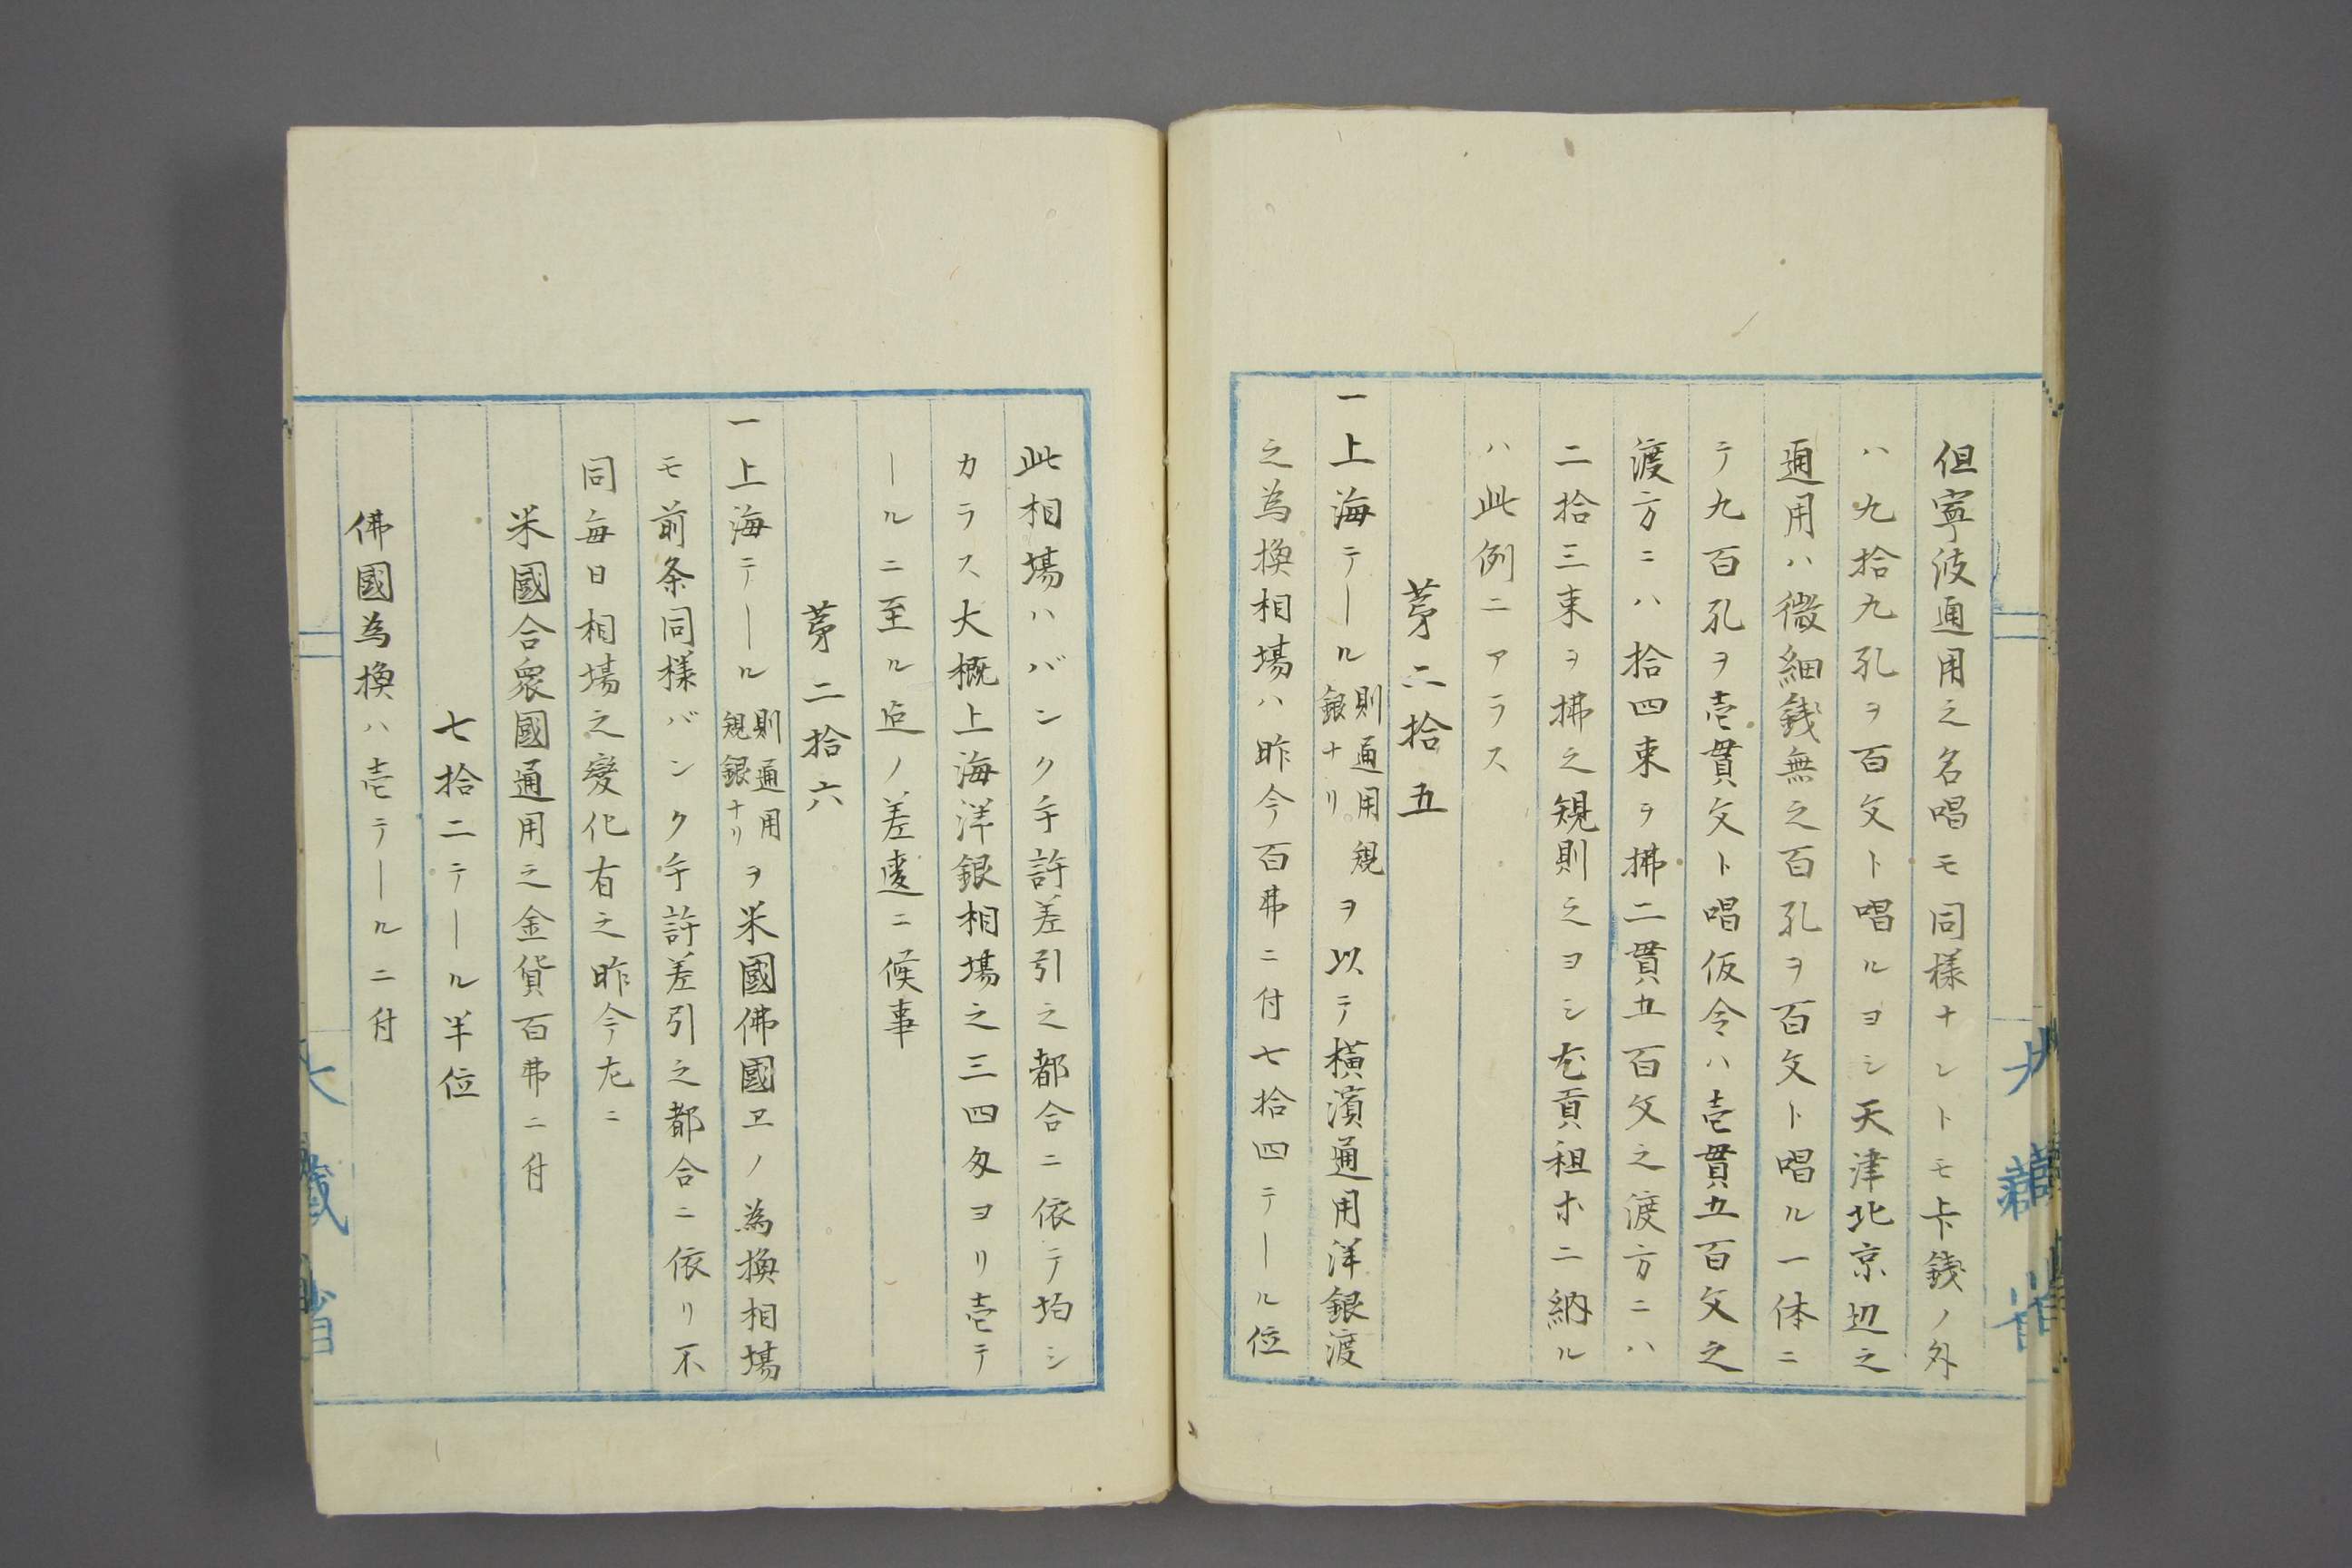 但寧波通用之名唱モ同様ナレトモ卡銭ノ外
ハ九拾九孔ヲ百文ト唱ルヨシ天津北京辺之
通用ハ微細銭無之百孔ヲ百文ト唱ル一体ニ
テ九百孔ヲ壱貫文ト唱仮令ハ壱貫五百文之
渡方ニハ拾四束ヲ拂二貫五百文之渡方ニハ
二拾三束ヲ拂之規則之ヨシ尤貢租ホニ納ル
ハ此例ニアラス
茅二拾五
一上海テール則通用規銀ナリヲ以テ横濱通用洋銀渡
之為換相場ハ昨今百弗ニ付七拾四テール位
此相場ハバンク手許差引之都合ニ依テ均シ
カラス大概上海洋銀相場之三四匁ヨリ壱テ
ールニ至ル迠ノ差違ニ候事
茅二拾六
一上海テール則通用規銀ナリヲ米國佛國ヱノ為換相場
モ前条同様バンク手許差引之都合ニ依リ不
同毎日相場之變化有之昨今左ニ
米國合衆國通用之金貨百弗ニ付
七拾二テール半位
佛國為換ハ壱テールニ付
大藏省